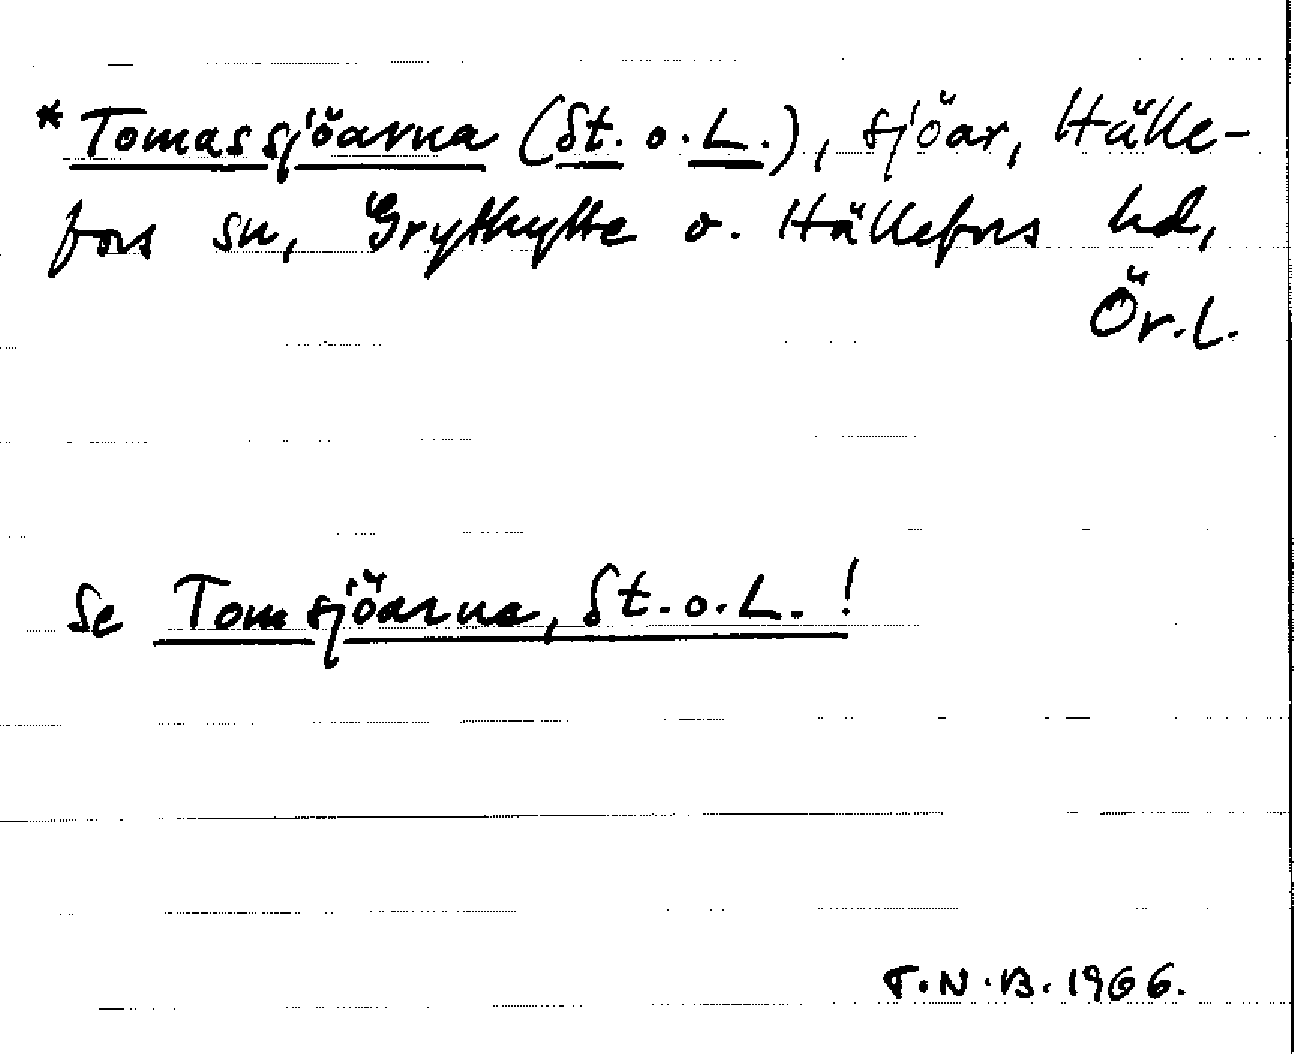 *Tomassjöarna (St. o. L.), sjöar, Hälle-
fors sn, Grythytte o. Hällefors hd,
Ör.l.
Se Tomsjöarna, St. o. L. !
T.N.B. 1966.